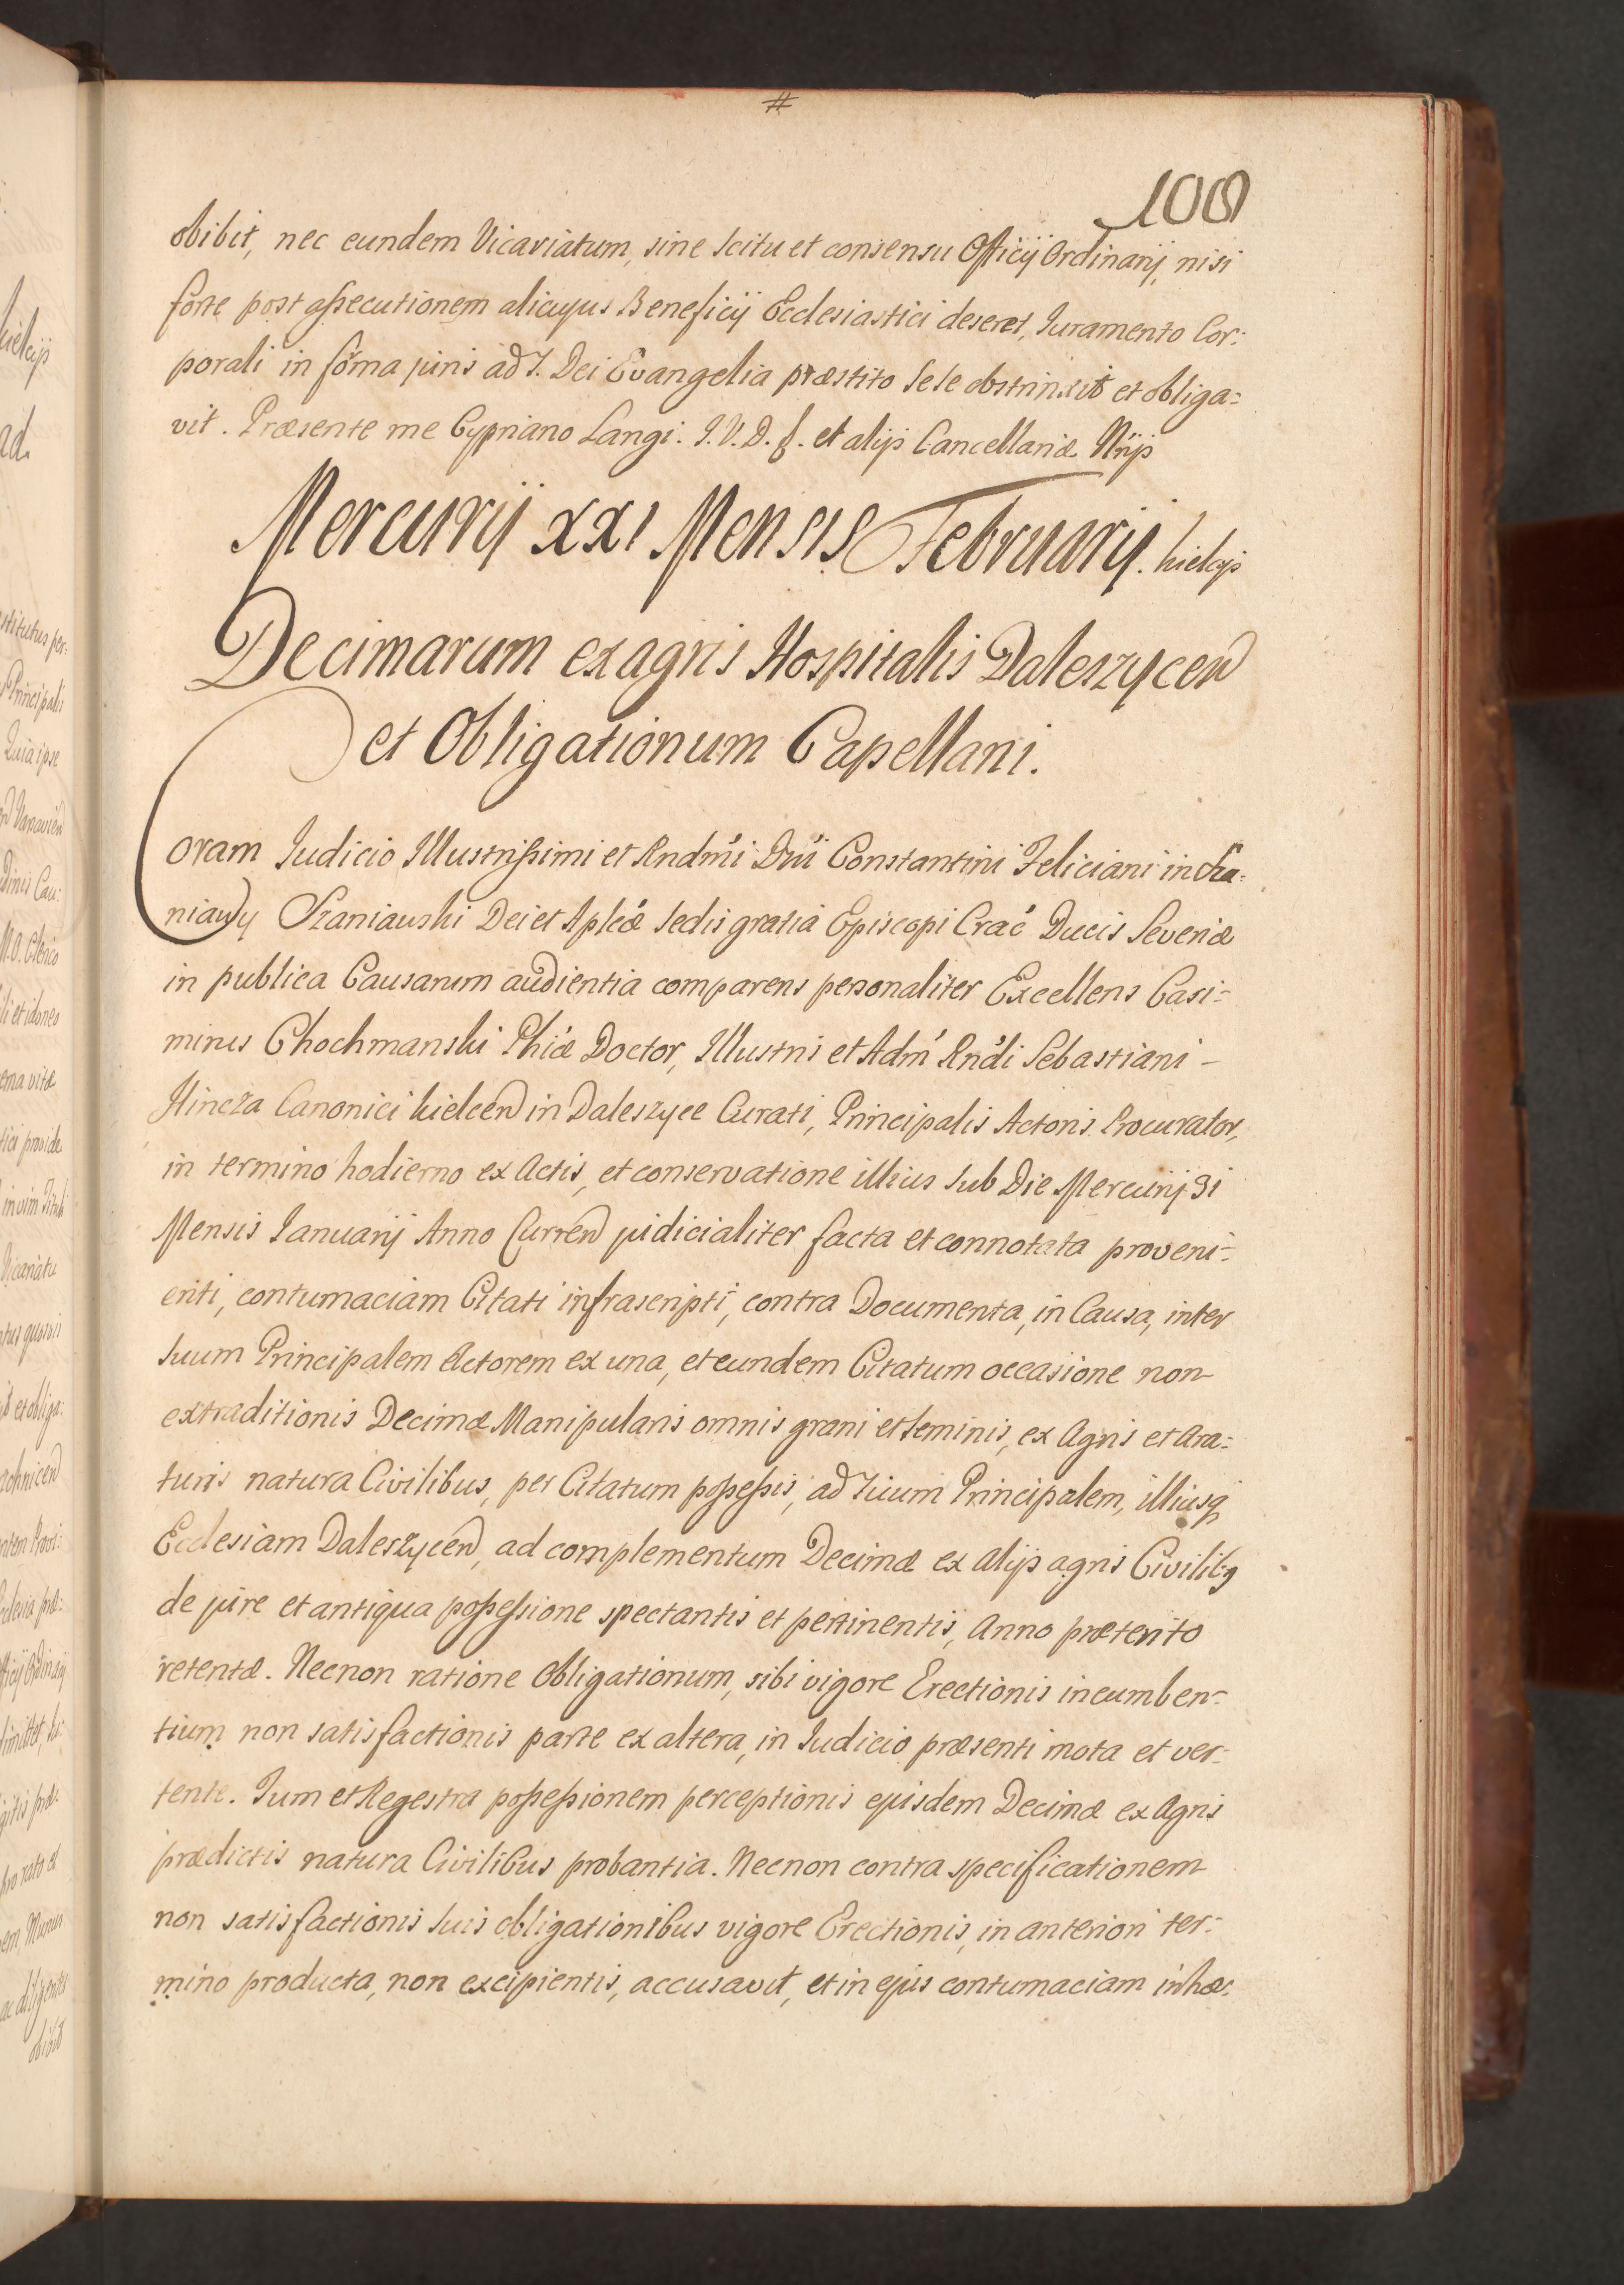 #
100
obibit, nec eundem Vicariatum, sine scitu et consensu Officij Ordinarij, nisi
forte post assecutionem alicujus Beneficij Ecclesiastici deseret, Iuramento Cor:
porali in forma juris ad S. Dei Evangelia præstito sese obstrinxit et obliga=
vit. Præsente me Cypriano Langi: I. V. D. et alijs Cancellariæ Nrijs
Mercurij XXI Mensis Februarij. Kielcijs
Decimarum ex agris Hospitalis Daleszycen
et Obligationum Capellani.
Coram Iudicio Illustrissimi et Rndmi Dni Constantini Feliciani in Sza=
niawy Szaniawski Dei et Aplicæ Sedis gratia Episcopi Crac Ducis Severiæ
in publica Causarum audientia comparens personaliter Excellens Casi=
mirus Chochmanski Phiæ Doctor, Illustris et Adm Rndi Sebastiani -
Hincza Canonici Kielcen in Daleszyce Curati, Principalis Actoris Procurator,
in termino hodierno ex Actis, et conservatione illius sub Die Mercurij 31
Mensis Ianuarij Anno Curren judicialiter facta et connotata proveni=
enti, contumaciam Citati infrascripti, contra Documenta, in Causa, inter
suum Principalem Actorem ex una, et eundem Citatum occasione non
extraditionis Decimæ Manipularis omnis grani et seminis, ex Agris et Ara=
turis natura Civilibus, per Citatum possessis, ad suum Principalem, illiusq
Ecclesiam Daleszycen, ad complementum Decimæ ex alijs agris Civilibg
de jure et antiqua possessione spectantis et pertinentis, Anno præterito
retentæ. Necnon ratione Obligationum, sibi vigore Erectionis incumben=
tium non satisfactionis parte ex altera, in Iudicio præsenti mota et ver=
tente. Tum et Regestra possessionem perceptionis ejusdem Decimæ ex Agris
prædictis natura Civilibus probantia. Necnon contra specificationem
non satisfactionis suis obligationibus vigore Erectionis, in anteriori ter=
mino producta, non excipientis, accusavit, et in ejus contumaciam inhæ: